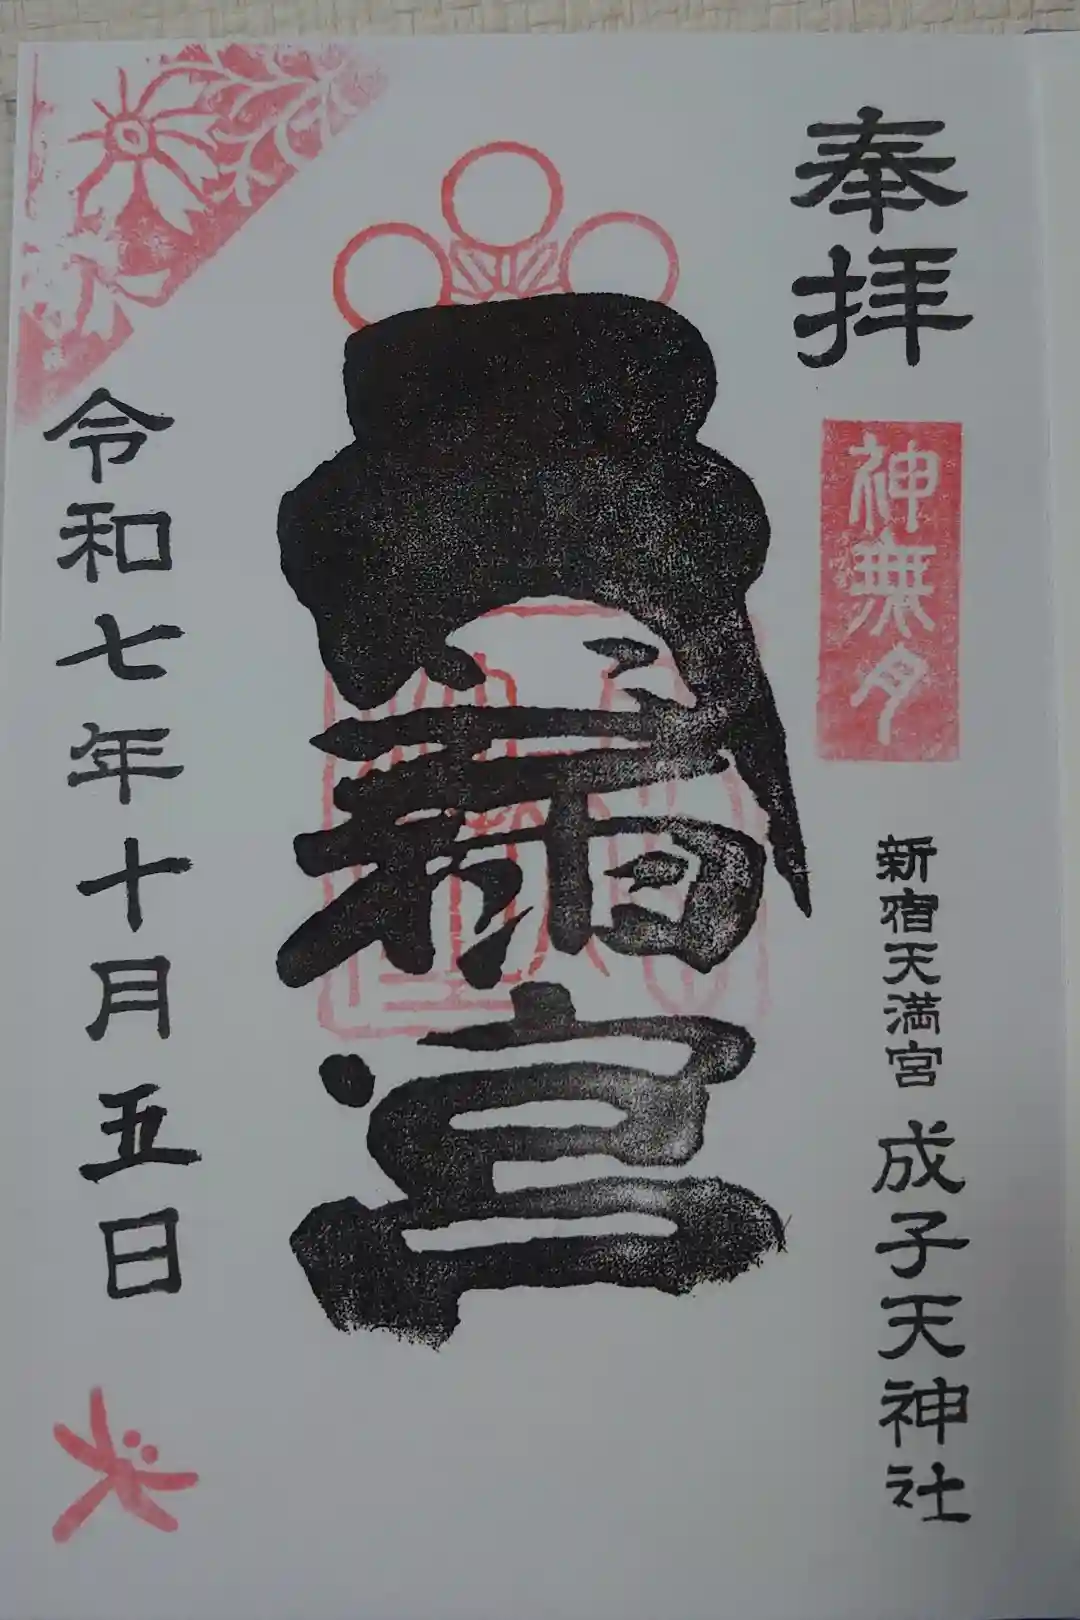 奉拝
神無月
新宿天満宮 成子天神社
令和七年十月五日